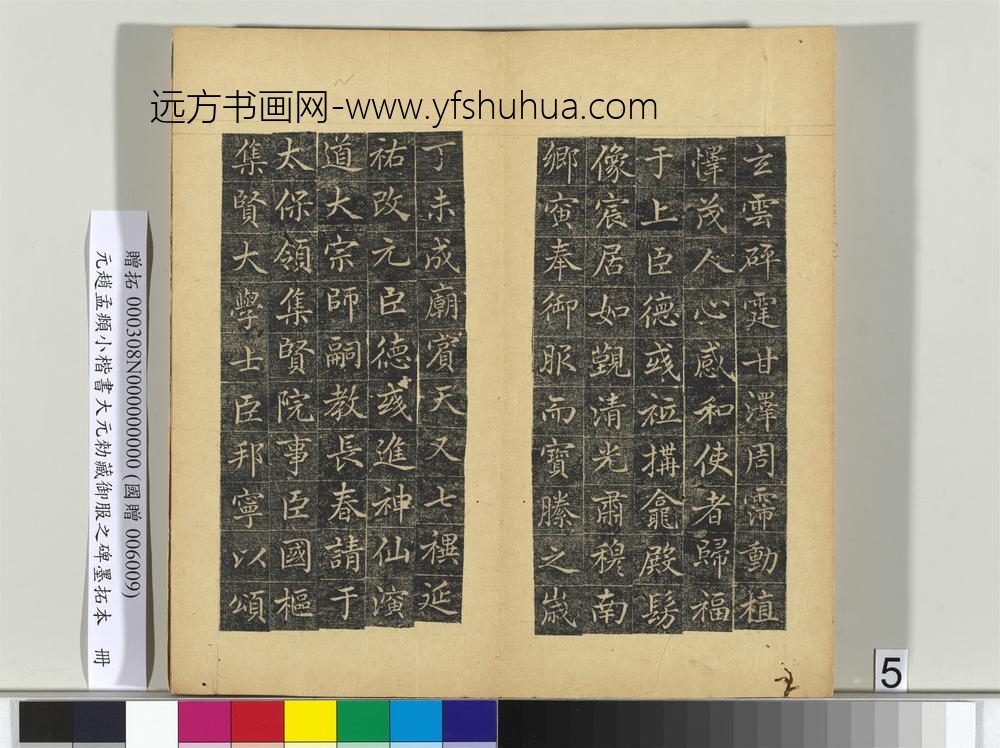 远方书画网-www.yfshuhua.com
玄雲砰霆甘澤周霈動植
懌茂人心感和使者歸福
于上臣德彧祗搆龕殿髣
像宸居如覲清光肅穆南
鄉寅奉御服而寶縢之歲
丁未成廟賓天又七禩延
祐改元臣德彧進神仙演
道大宗師嗣教長春請于
太保領集賢院事臣國樞
集賢大學士臣邦寧以頌
贈拓 000308N000000000 (國贈 006009)
元趙孟頫小楷書大元勑藏御服之碑墨拓本 冊
5